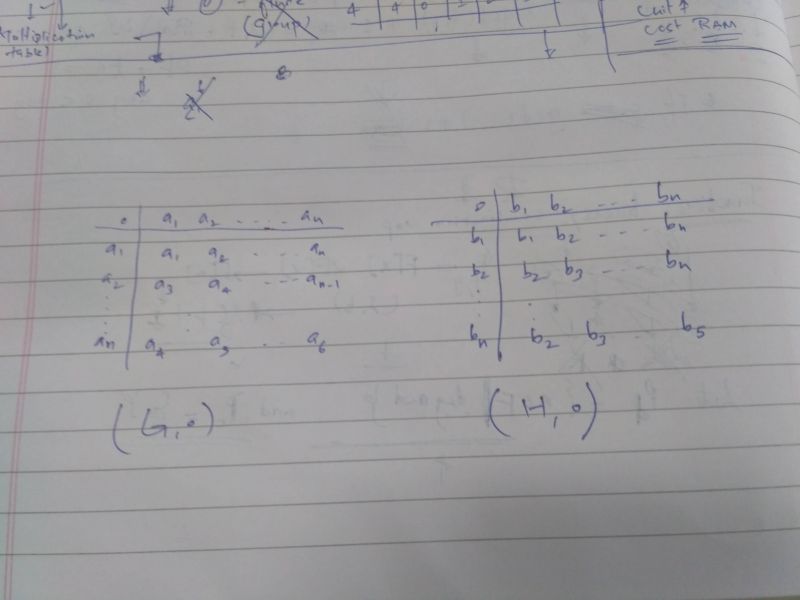 Multiplication
table)
(Group)
4 4 0
Unit
Cost RAM
o a₁ a₂ ..... aₙ
a₁ a₁ a₂ . . aₙ
a₂ a₃ a₄ .... aₙ₋₁
aₙ a₄ a₅ . a₆
(G, o)
o b₁ b₂ .... bₙ
b₁ b₁ b₂ .... bₙ
b₂ b₂ b₃ ..... bₙ
bₙ b₂ b₃ . b₅
(H, o)